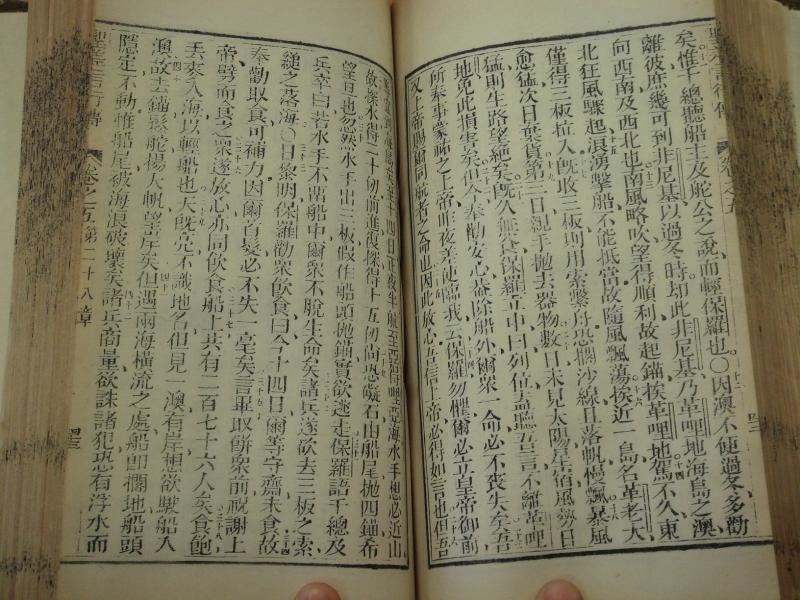 聖差言行傳 卷之五
矣惟千總聽船主及舵公之說而輕保羅也○因澳不便過冬多勸
離彼庶幾可到非尼基以過冬時却此非尼基乃革哩地海島之澳
向西南及西北也南風略吹望得順利故起錨挨革哩地駕不久東
北狂風驟起浪湧擊船不能抵當故隨風飄蕩挨近一島名革老大
僅得三板拉入既收三板則用索繫舟恐擱沙線且落帆慢飄暴風
愈猛次日棄貨第三日親手拋去器物數日未見太陽星宿風勢日
猛則生路望絕矣既久無食保羅立中曰列位若聽吾言不離革哩
地免此損害矣但今奉勸安心蓋除船外爾眾一命必不喪失矣吾
所奉事蒙祐之上帝昨夜差使臨我云保羅勿懼爾必立皇帝御前
又上帝賜爾同航者之命也因此放心吾信上帝必得如言也但吾
故探水得二十仞前進復探得十五仞尚恐礙石由船尾拋四錨希
望日也忽然水手出三板假作船頭拋錨實欲逃走保羅語千總及
兵卒曰若水手不留船中爾眾不脫生命矣諸兵遂欲去三板之索
縋之落海○日黎明保羅勸眾飲食曰今十四日爾等守齋未食故
奉勸取食可補力因爾首髮必不失一毫矣言畢取餅眾前祝謝上
帝劈而食之眾遂放心亦同飲食船上共有二百七十六人矣食飽
丟麥入海以輕船也天既亮不識地名但見一澳有岸想欲駛船入
澳故去錨鬆舵揚大帆望岸矣但遇兩海橫流之處船即擱地船頭
隱定不動惟船尾破海浪破壞矣諸兵商量欲誅諸犯恐有浮水而
聖差言行傳 卷之五 第二十八章